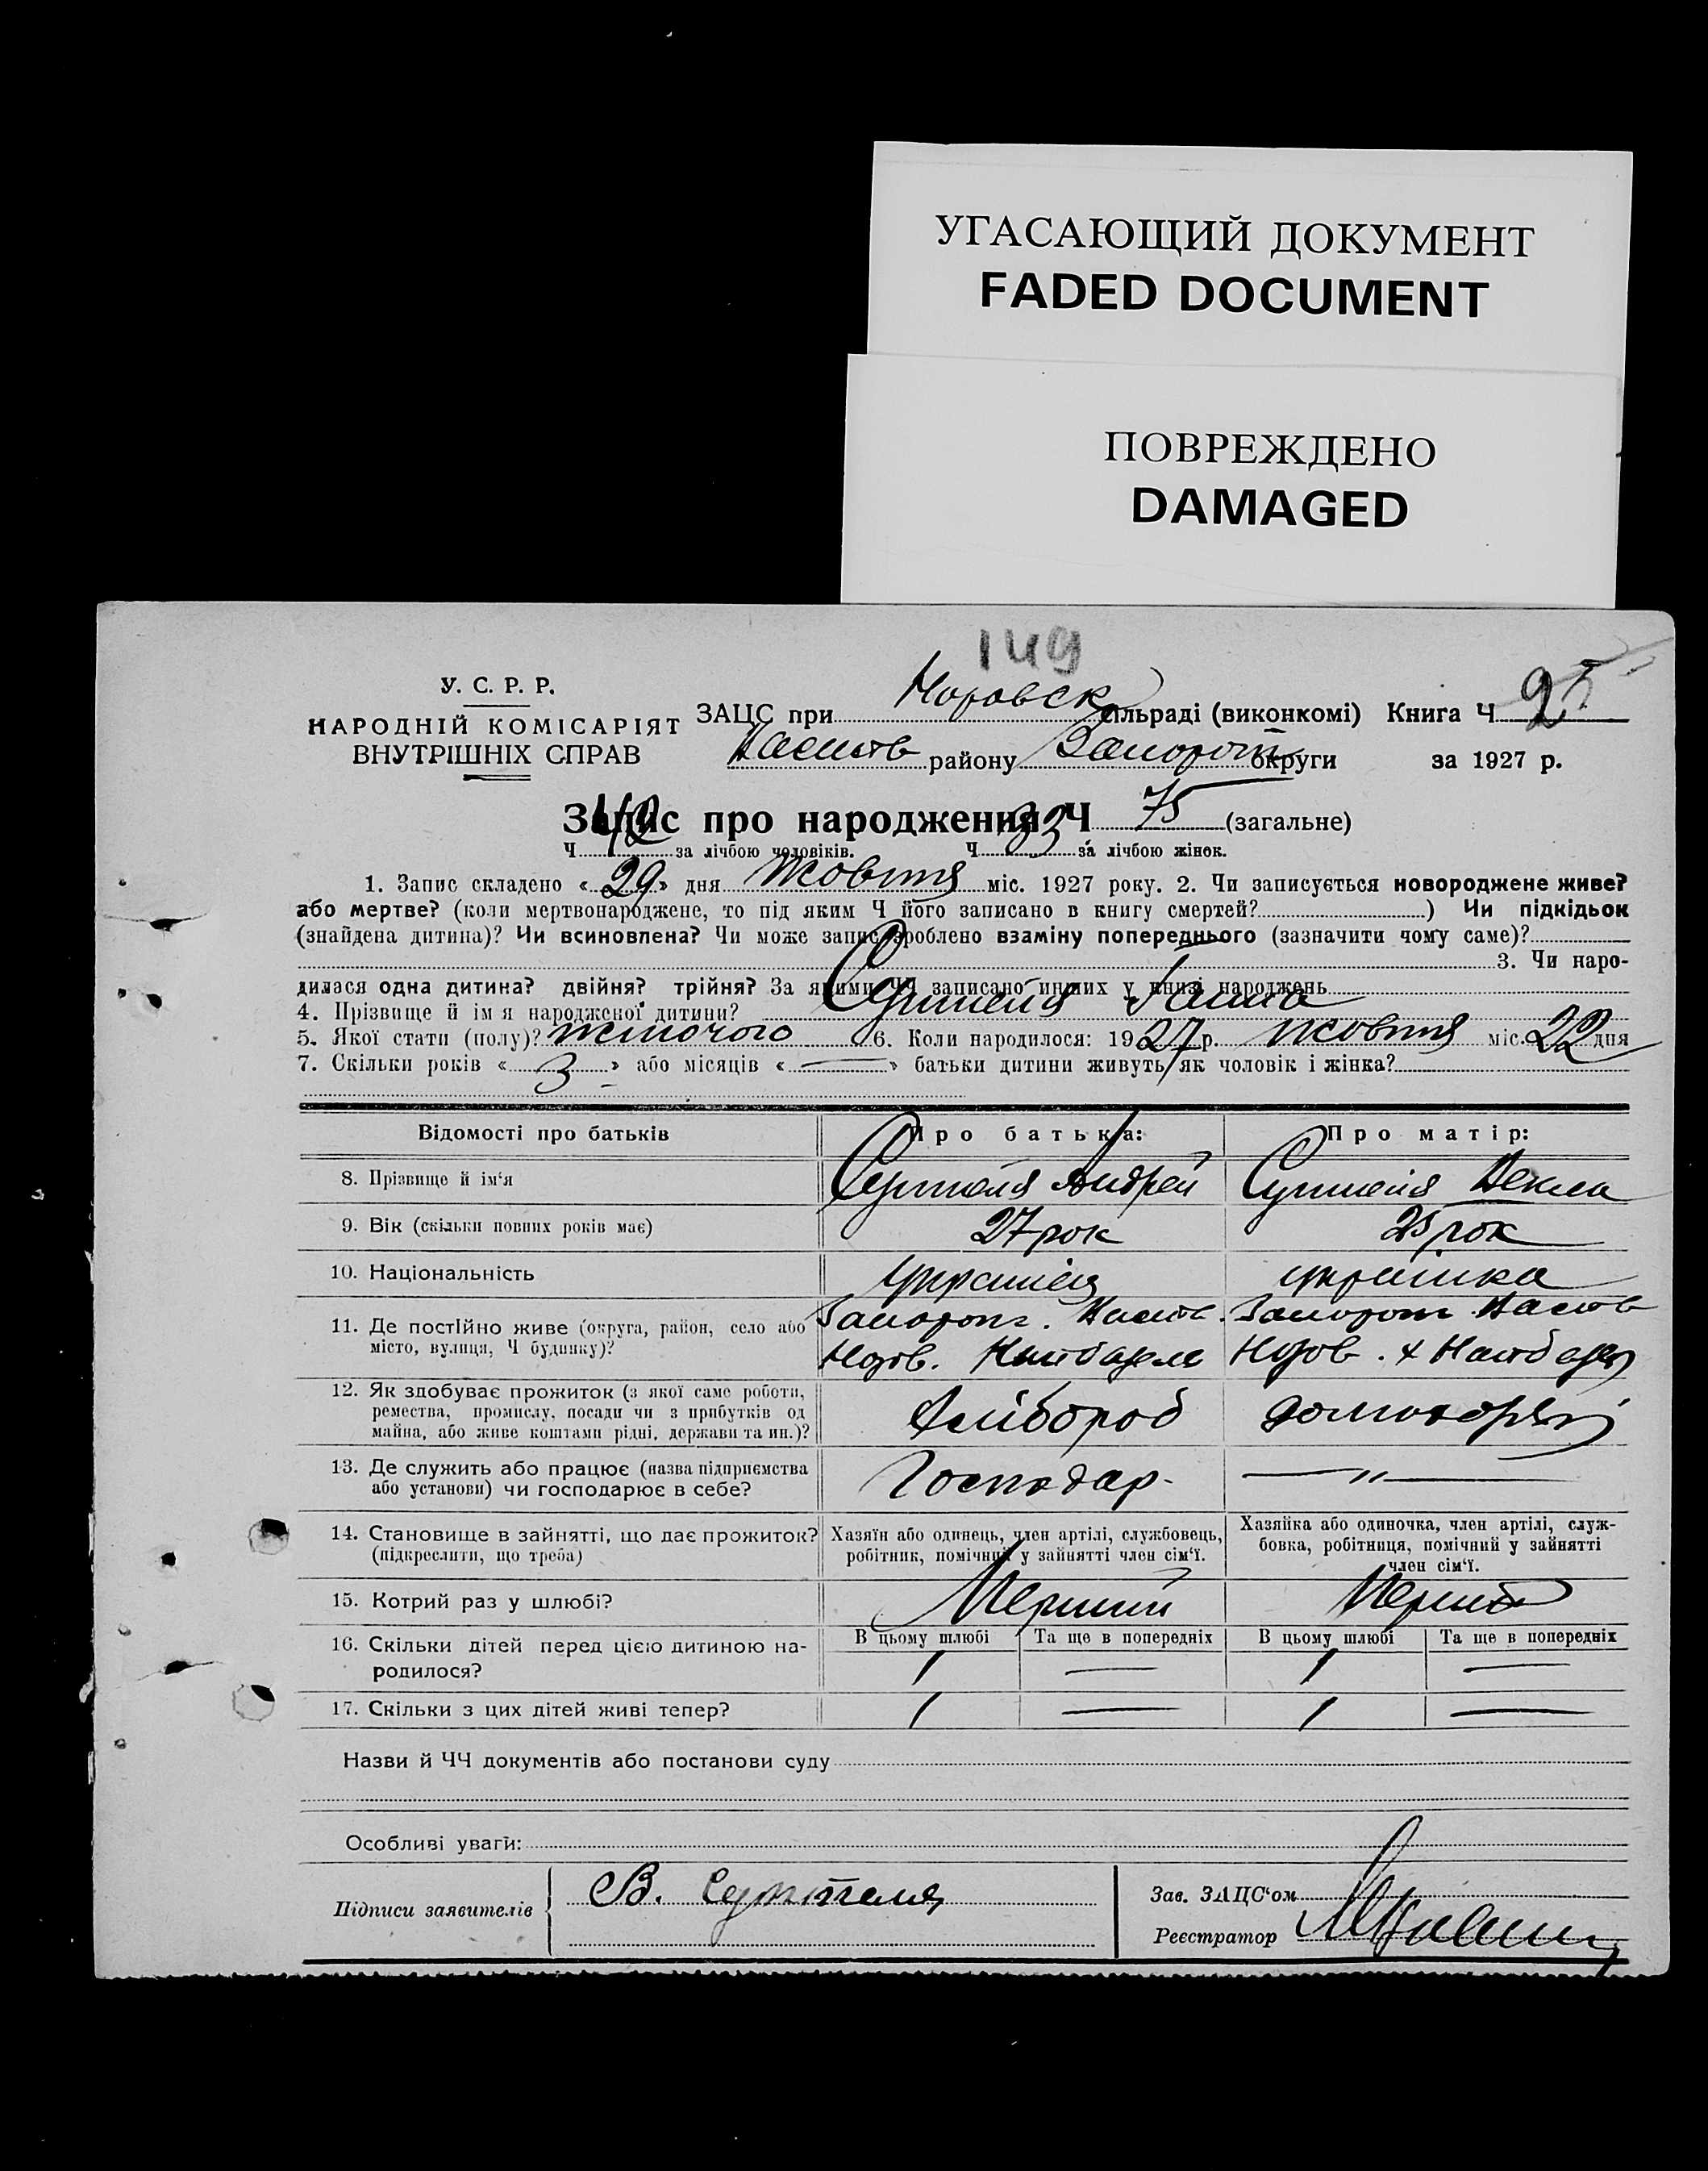 УГАСАЮЩИЙ ДОКУМЕНТ
FADED DOCUMENT
ПОВРЕЖДЕНО
DAMAGED
149
У. С. Р. Р.
НАРОДНІЙ КОМІСАРІЯТ
ВНУТРІШНІХ СПРАВ
ЗАЦС при сільраді (виконкомі) Книга Ч
району округи за 1927 р.
Запис про народження Ч 75 (загальне)
Ч 42 за лічбою чоловіків. Ч 33 за лічбою жінок.
1. Запис складено « 29 » дня Жовтня міс. 1927 року. 2. Чи записується новороджене живе?
або мертве? (коли мертвонароджене, то під яким Ч його записано в книгу смертей? ) Чи підкідьок
(знайдена дитина)? Чи всиновлена? Чи може запис зроблено взаміну попереднього (зазначити чому саме)?
3. Чи наро-
дилася одна дитина? двійня? трійня? За якими ЧЧ записано инших у книзі народжень
4. Прізвище й ім я народженої дитини? Ганна
5. Якої стати (полу)? жіночого 6. Коли народилося: 1927 р. Жовтня міс. 22 дня
7. Скільки років « 3 » або місяців « — » батьки дитини живуть як чоловік і жінка?
Відомості про батьків Про батька: Про матір:
8. Прізвище й ім‘я Андрей Текля
9. Вік (скільки повних років має) 27 рок 25 рок
10. Національність українец українка
11. Де постІйно живе (округа, район, село або
місто, вулиця, Ч будинку)?
12. Як здобуває прожиток (з якої саме роботи,
ремества, промислу, посади чи з прибутків од
майна, або живе коштами рідні, держави та ин.)? хлібороб
13. Де служить або працює (назва підприємства
або установи) чи господарює в себе? Господар — " —
14. Становище в зайнятті, що дає прожиток?
(підкреслити, що треба)
Хазяїн або одинець, член артілі, службовець,
робітник, помічний у зайнятті член сім‘ї.
Хазяйка або одиночка, член артілі, служ-
бовка, робітниця, помічний у зайнятті
член сім‘ї.
15. Котрий раз у шлюбі? Перший
В цьому шлюбі Та ще в попередніх В цьому шлюбі Та ще в попередніх
16. Скільки дітей перед цією дитиною на-
родилося? 1 — 1 —
17. Скільки з цих дітей живі тепер? 1 — 1 —
Назви й ЧЧ документів або постанови суду
Особливі уваги:
Підписи заявителів В.
Зав. ЗАЦС‘ом
Реєстратор